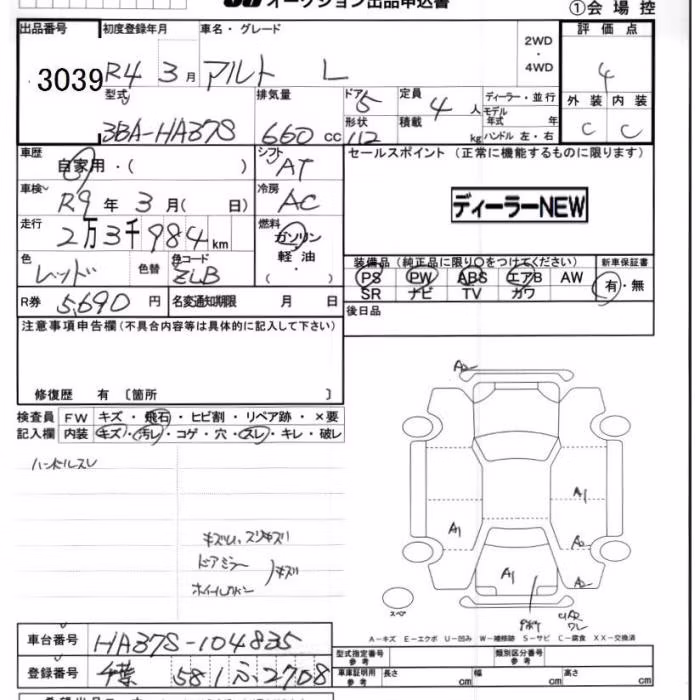 オークション出品申込書
①会場控
出品番号 初度登録年月 車名・グレード 2WD・4WD 評価点
3039 R4 3月 アルト L 4
型式 排気量 ドア 5 定員 4人 ディーラー・並行 外装 内装
3BA-HA37S 660cc 形状 積載 モデル年式 年 C C
112 kg ハンドル 左・右
車歴 シフト セールスポイント (正常に機能するものに限ります)
自家用・( ) AT
車検~ 冷房 ディーラーNEW
R9年 3月( 日) AC
走行 燃料
2万3千984km ガソリン・軽油・( )
装備品(純正品に限り〇をつけてください) 新車保証書
色 色替 色コード PS PW ABS エアB AW 有・無
レッド ZLB SR ナビ TV カワ
R券 5,690円 名変通知期限 月 日 後日品
注意事項申告欄(不具合内容等は具体的に記入して下さい)
修復歴 有 〔箇所 〕
検査員 FW キズ・飛石・ヒビ割・リペア跡・×要
記入欄 内装 キズ・汚レ・コゲ・穴・スレ・キレ・破レ
ハンドルスレ
ドアミラー キズ
A2
A1
A1
A1
A2
スペア
A-キズ E-エクボ U-凹み W-補修跡 S-サビ C-腐食 XX-交換済
車台番号 HA37S-104835
型式指定番号 参考 類別区分番号 参考
登録番号 千葉 581 ふ 2708
車庫証明用 参考 長さ cm 幅 cm 高さ cm